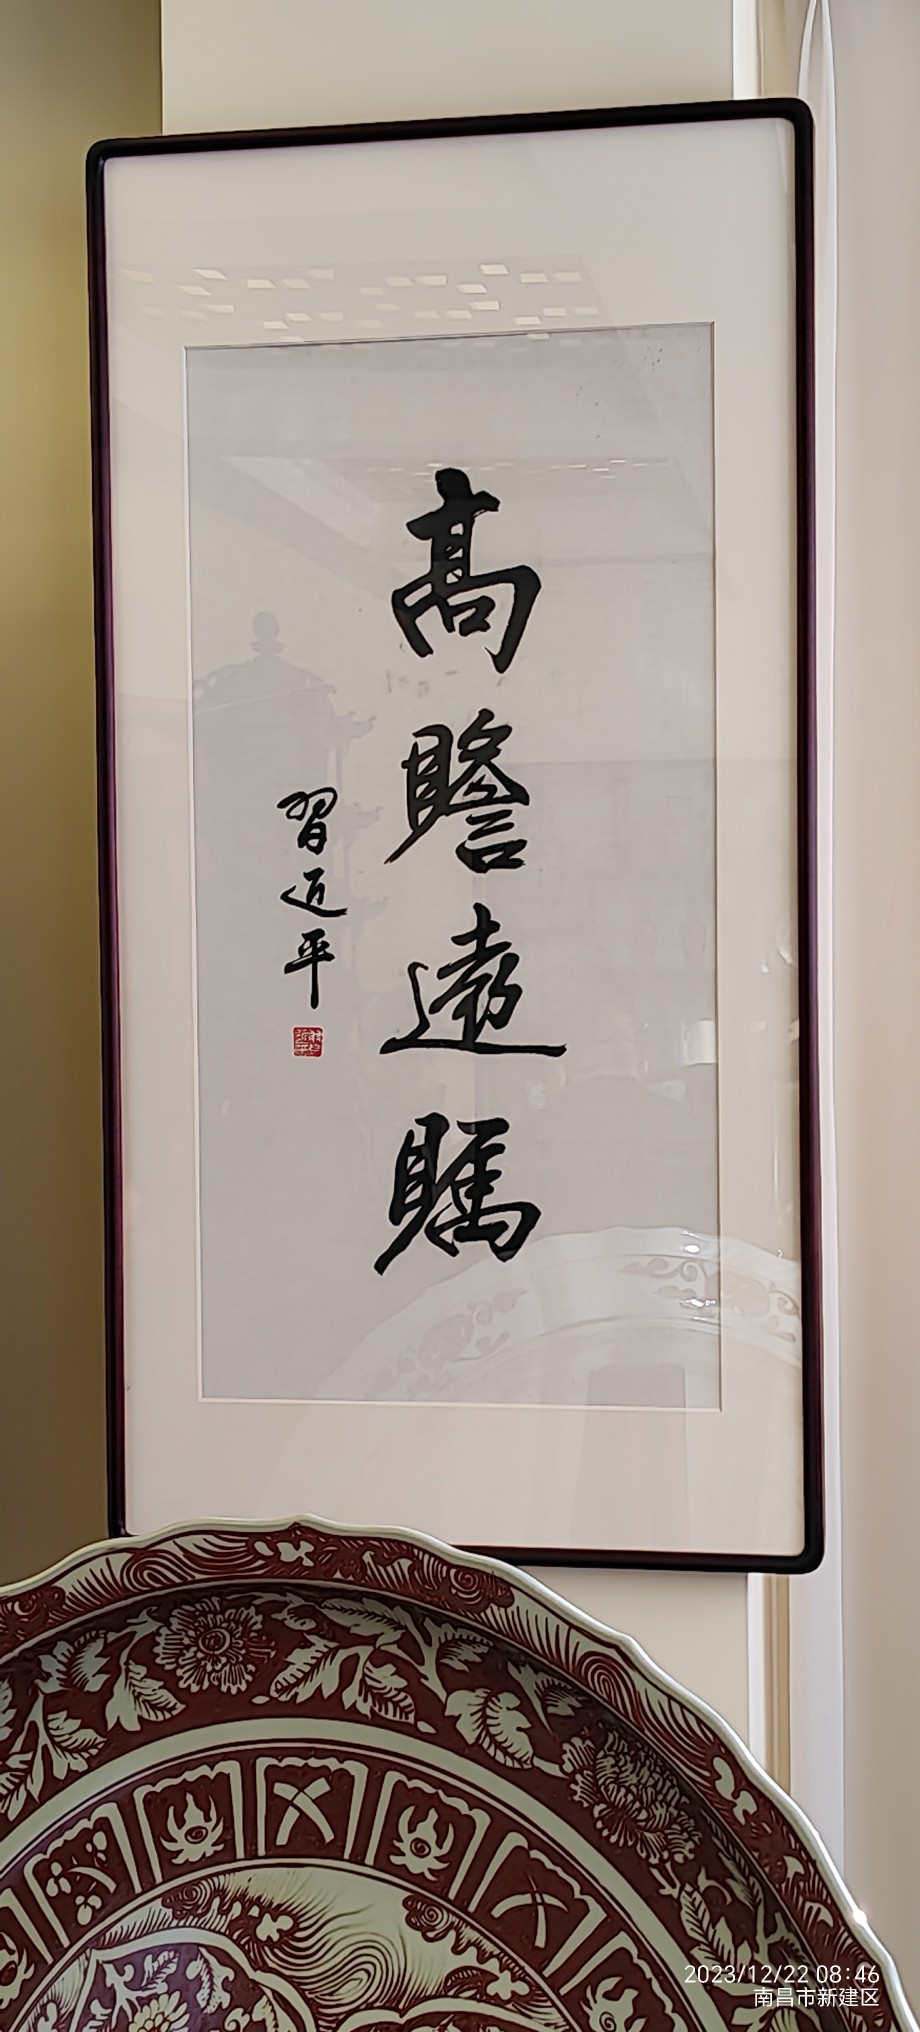 高瞻遠瞩
習近平
2023/12/22 08:46
南昌市新建区